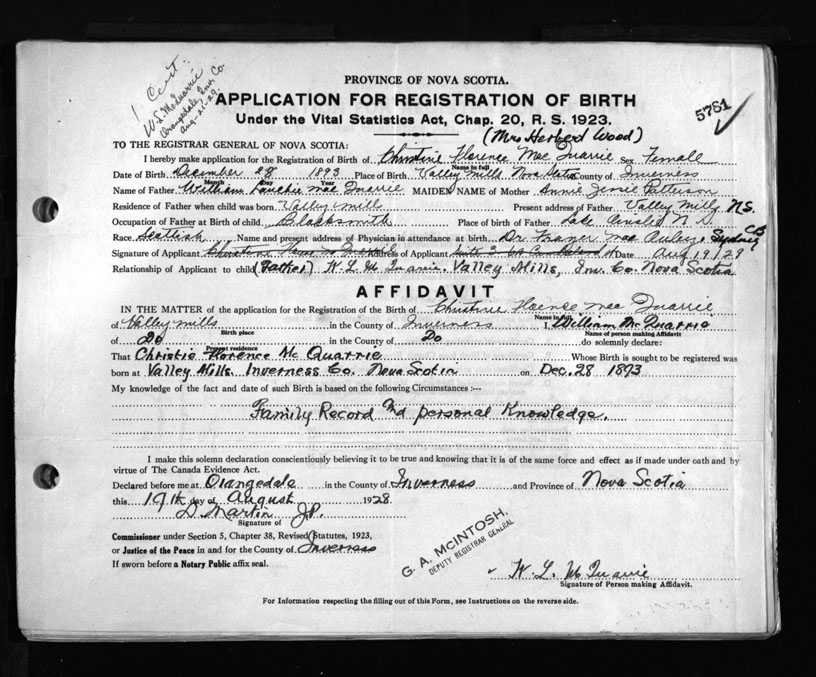 1 Cert:
W. L. McQuarrie
Orangedale Inv. Co.
Aug-21-29.
5761
PROVINCE OF NOVA SCOTIA.
APPLICATION FOR REGISTRATION OF BIRTH
Under the Vital Statistics Act, Chap. 20, R. S. 1923.
(Mrs Herbert Wood)
TO THE REGISTRAR GENERAL OF NOVA SCOTIA:
I hereby make application for the Registration of Birth of Christine Florence Mac Quarrie Sex Female
Name in full
Date of Birth December 28 1893 Place of Birth Valley Mills Nova Scotia County of Inverness
Month Day Year
Name of Father William Mac Quarrie MAIDEN NAME of Mother Annie Jessie Patterson
Residence of Father when child was born Valley Mill Present address of Father Valley Mills N.S.
Occupation of Father at Birth of child Blacksmith Place of birth of Father N S
Race Scottish Name and present address of Physician in attendance at birth Dr Sydney CB
Signature of Applicant Address of Applicant Date Aug 19/29
Relationship of Applicant to child (Father) W. L. McQuarrie. Valley Mills, Inv. Co. Nova Scotia
AFFIDAVIT
IN THE MATTER of the application for the Registration of the Birth of Christine Mac Quarrie
Name in full
of Valley Mills in the County of Inverness I, William McQuarrie
Birth place Name of person making Affidavit
of Do in the County of Do do solemnly declare:
Present residence
That Christie Florence Mc Quarrie Whose Birth is sought to be registered was
born at Valley Mills. Inverness Co. Nova Scotia on Dec. 28 1893
My knowledge of the fact and date of such Birth is based on the following Circumstances :—
Family Record and personal Knowledge.
I make this solemn declaration conscientiously believing it to be true and knowing that it is of the same force and effect as if made under oath and by
virtue of The Canada Evidence Act.
Declared before me at Orangedale in the County of Inverness and Province of Nova Scotia
this 19th day of August 1928
D. Martin J.P.
Signature of
Commissioner under Section 5, Chapter 38, Revised Statutes, 1923,
or Justice of the Peace in and for the County of Inverness
If sworn before a Notary Public affix seal.
G. A. McINTOSH,
DEPUTY REGISTRAR GENERAL
W. L. McQuarrie
Signature of Person making Affidavit.
For Information respecting the filling out of this Form, see Instructions on the reverse side.